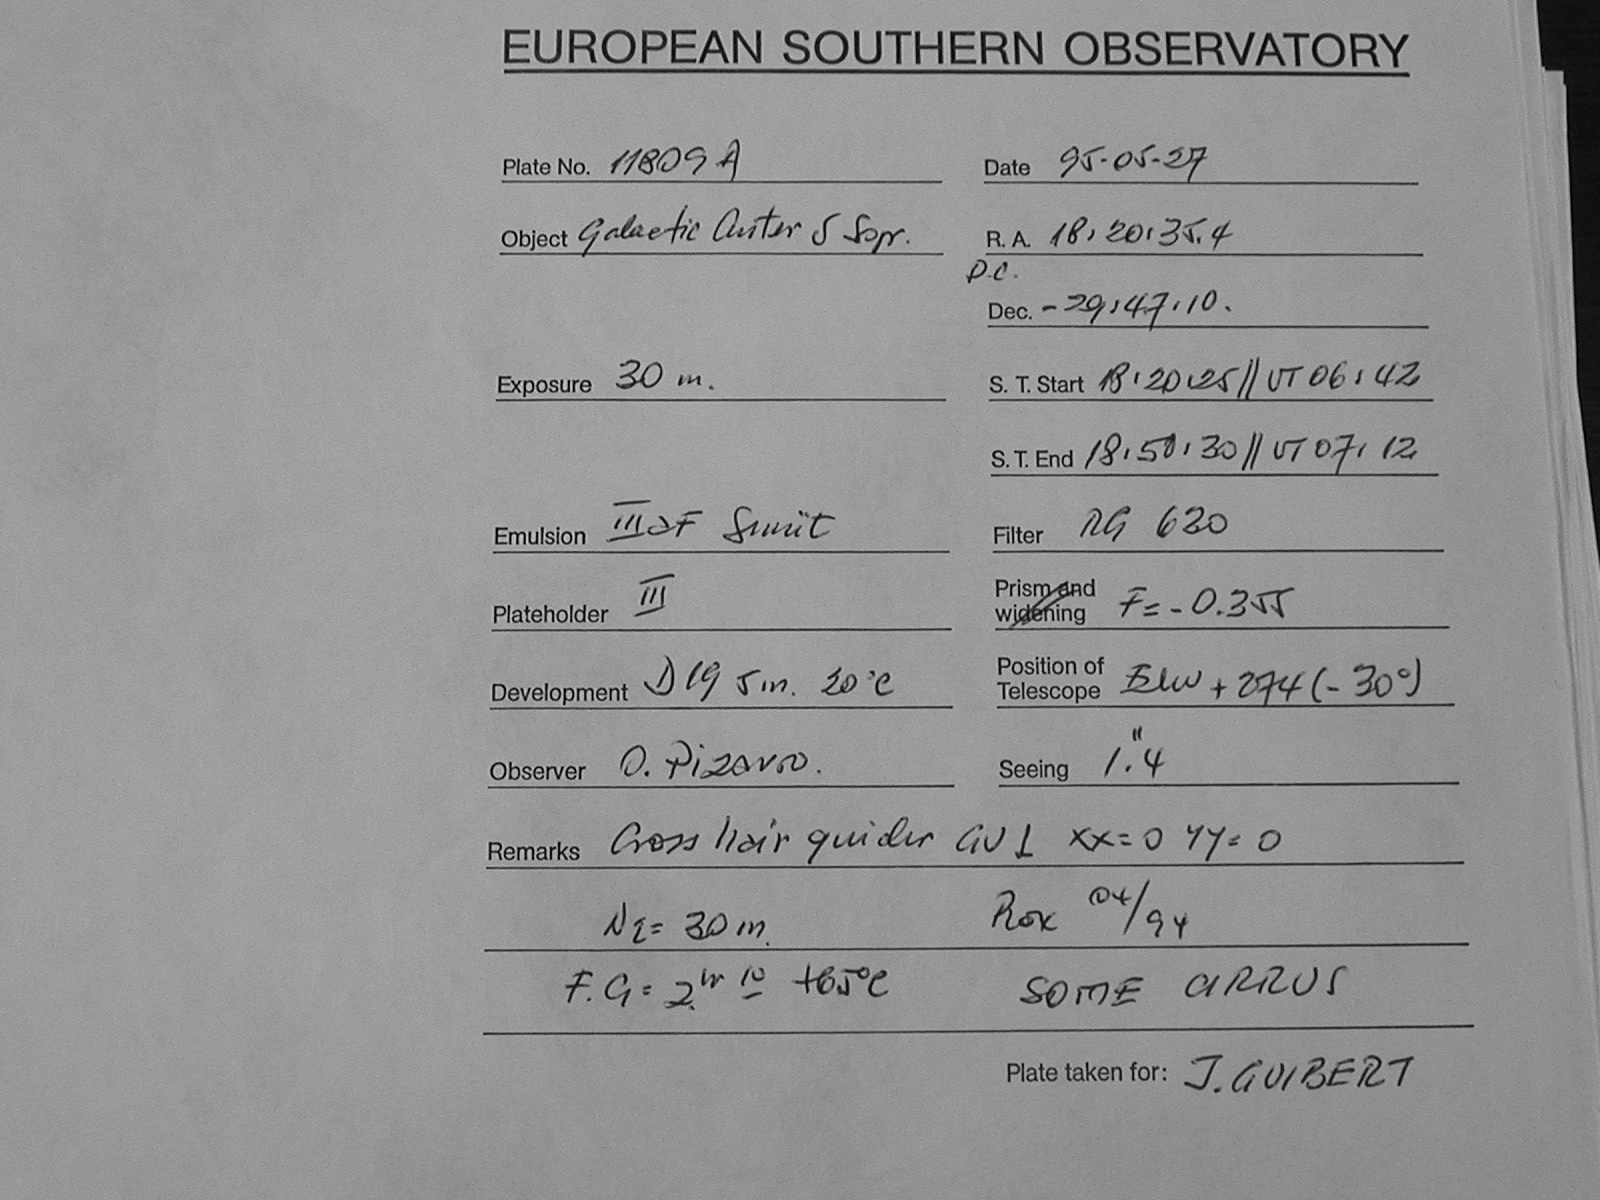 EUROPEAN SOUTHERN OBSERVATORY
Plate No. 11809 A Date 95-05-27
Object Galactic Cluster 5 R.A. 18:20:35.4
D.C.
Dec. -29:47:10.
Exposure 30 m. S. T. Start 18:20:25 // UT 06:42
S. T. End 18:50:30 // UT 07:12
Emulsion IIIaF Filter RG 630
Plateholder III Prism and widening F= -0.355
Development D19 5m. 20°C Position of Telescope + 274 (-30°)
Observer O. Pizarro. Seeing 1."4
Remarks Cross hair guider GU 1 XX=0 YY=0
N2= 30 m. 04/94
F.G= 2 +65°C SOME CIRRUS
Plate taken for: J. GUIBERT